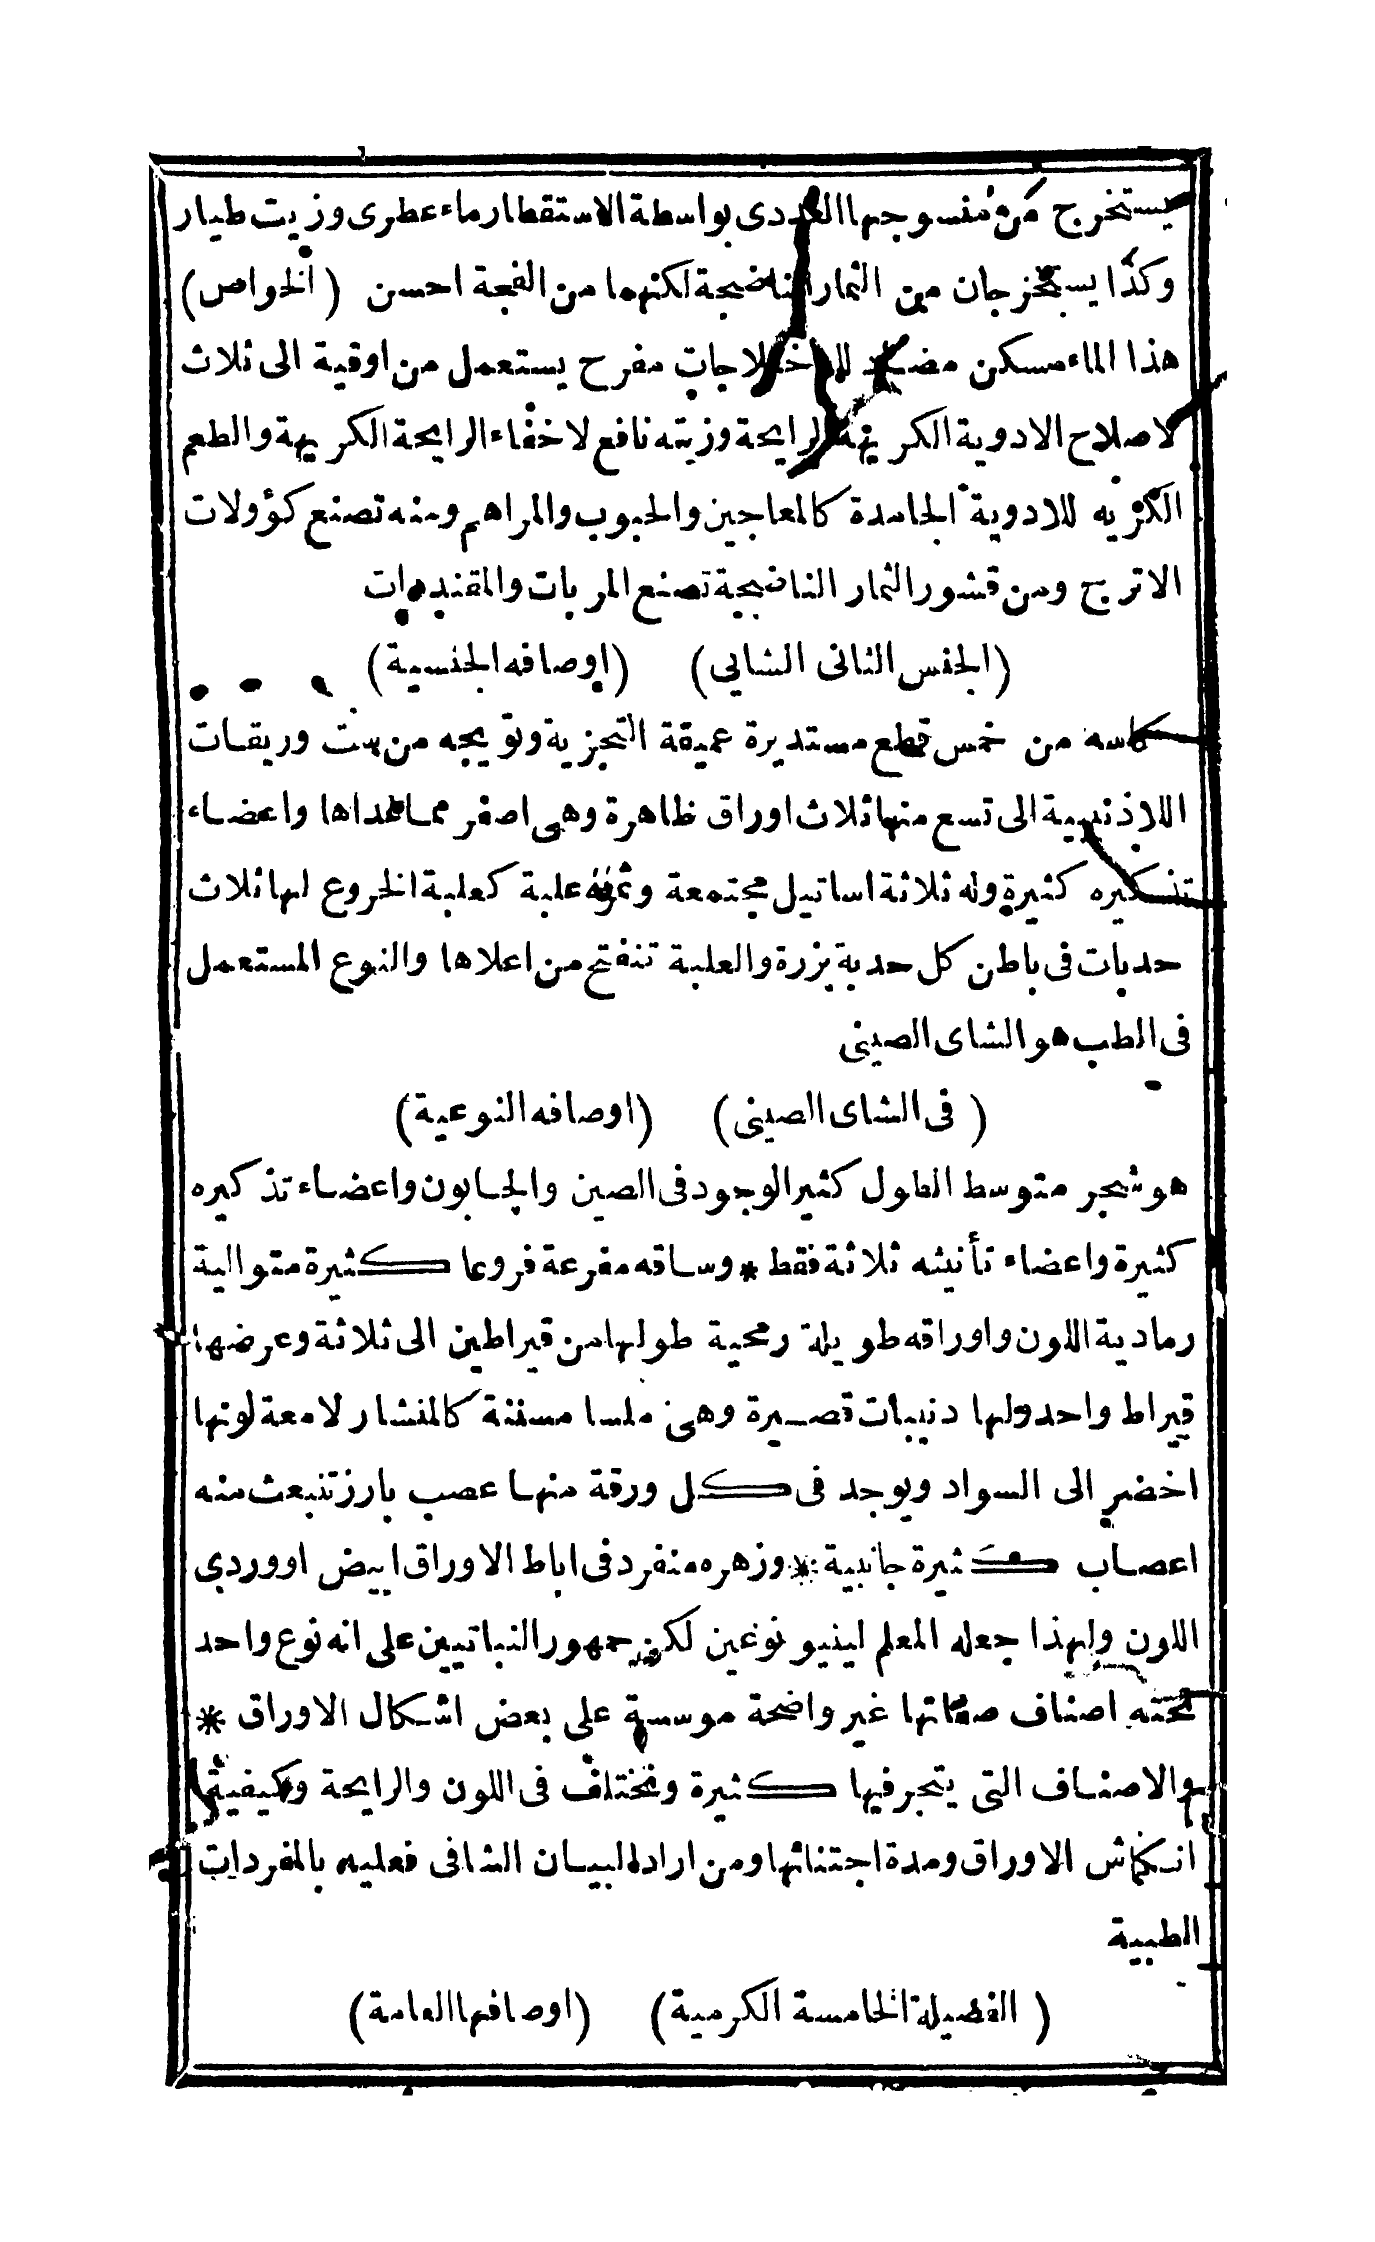 يستخرج من منسوجها الغددى بواسطة الاستقطار ماء عطرى وزيت طيار
وكذا يستخرجان من الثمار الناضجة لكنهما من الفجة احسن (الخواص)
هذا الماء مسكن مضاد للاختلاجات مفرح يستعمل من اوقية الى ثلاث
لاصلاح الادوية الكريهة الرايحة وزيته نافع لاخفاء الرايحة الكريهة والطعم
الكريه للادوية الجامدة كالمعاجين والحبوب والمراهم ومنه تصنع كؤولات
الاترج ومن قشور الثمار الناضجة تصنع المربات والمقنديات
(الجنس الثانى الشايى) (اوصافه الجنسية)
كاسه من خمس قطع مستديرة عميقة التجزية وتويجه من ست وريقات
اللاذنبية الى تسع منها ثلاث اوراق ظاهرة وهى اصغر مما عداها واعضاء
تذكيره كثيرة وله ثلاثة اساتيل مجتمعة وثمره علبة كعلبة الخروع لها ثلاث
حدبات فى باطن كل حدبة بزرة والعلبة تنفتح من اعلاها والنوع المستعمل
فى الطب هو الشاى الصينى
(فى الشاى الصينى) (اوصافه النوعية)
هو شجر متوسط الطول كثير الوجود فى الصين والجابون واعضاء تذكيره
كثيرة واعضاء تأنيثه ثلاثة فقط * وساقه مفرعة فروعا كثيرة متوالية
رمادية اللون واوراقه طويلة رمحية طولها من قيراطين الى ثلاثة وعرضها
قيراط واحد ولها ذنيبات قصيرة وهى ملسا مسننة كالمنشار لامعة لونها
اخضر الى السواد ويوجد فى كل ورقة منها عصب بارز تنبعث منه
اعصاب كثيرة جانبية * وزهره منفرد فى اباط الاوراق ابيض او وردى
اللون ولهذا جعله المعلم لينيو نوعين لكن جمهور النباتيين على انه نوع واحد
تحته اصناف صفاتها غير واضحة موسسة على بعض اشكال الاوراق *
والاصناف التى يتجر فيها كثيرة وتختلف فى اللون والرايحة وكيفية
انكماش الاوراق ومدة اجتنائها ومن اراد البيان الشافى فعليه بالمفردات
الطبية
(الفصيلة الخامسة الكرمية) (اوصافها العامة)